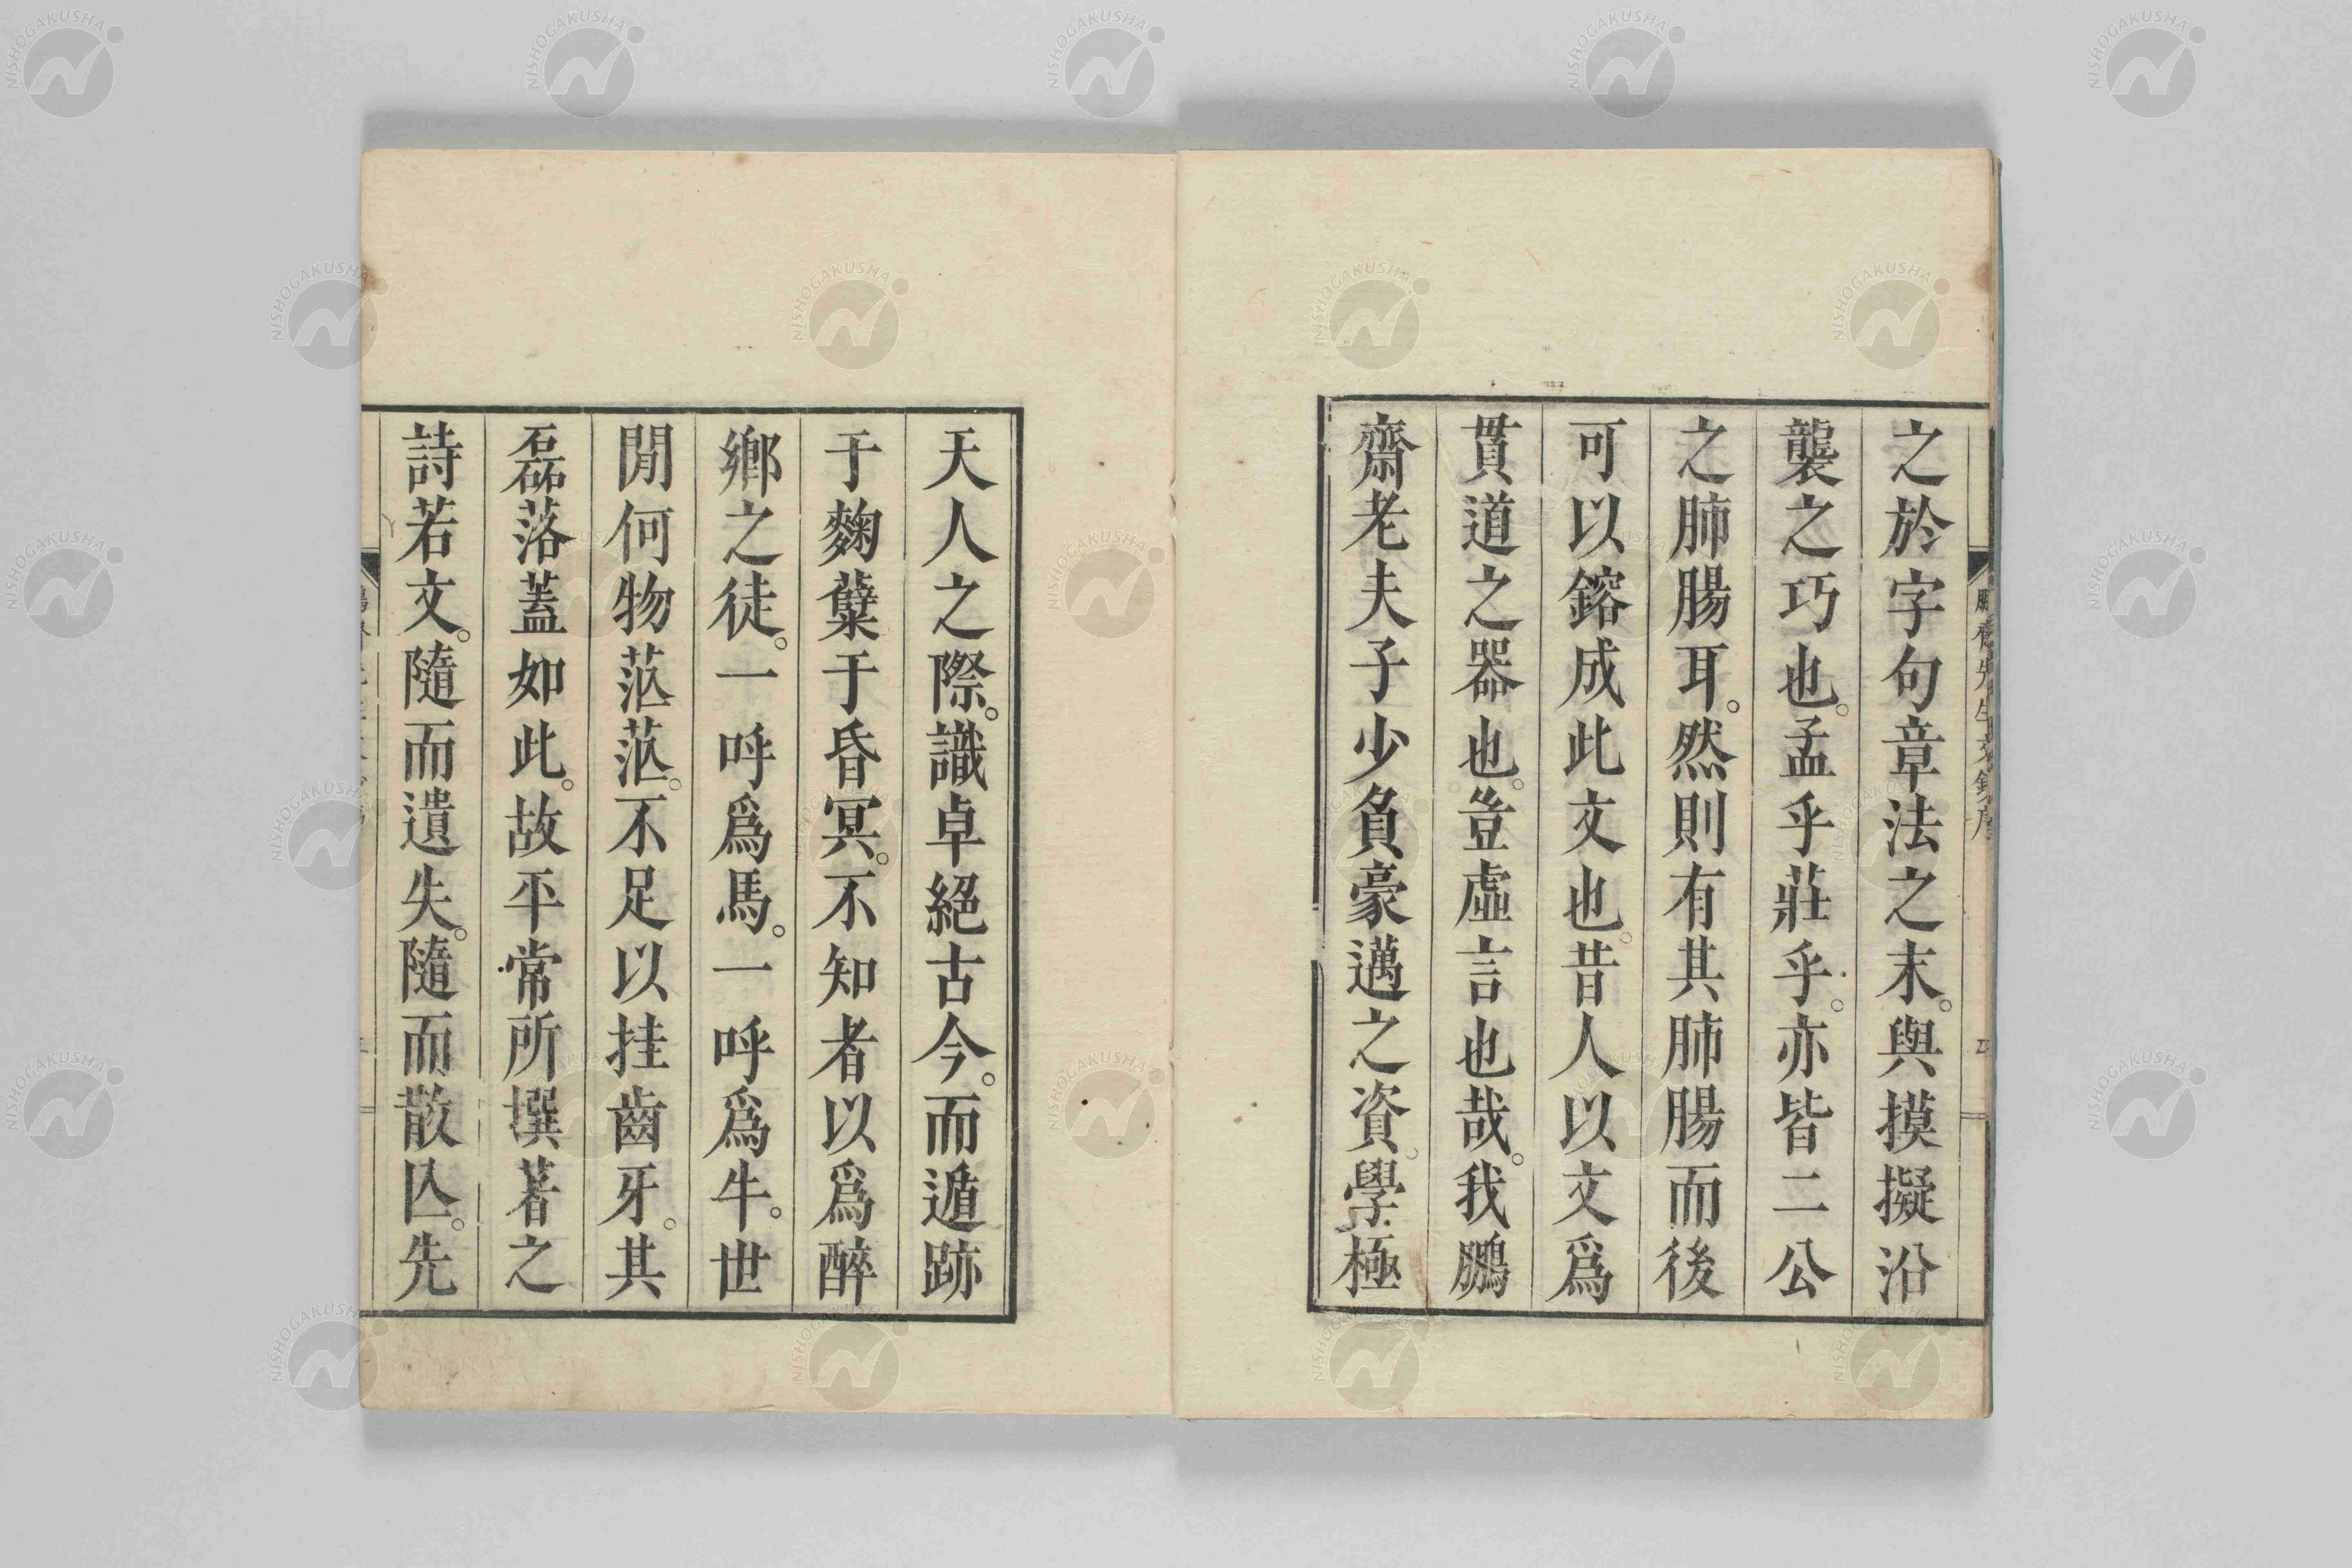 之於字句章法之末。與摸擬沿
襲之巧也。孟乎莊乎。亦皆二公
之肺腸耳。然則有其肺腸而後
可以鎔成此文也。昔人以文爲
貫道之器也。豈虛言也哉。我鵬
齋老夫子少負豪邁之資。學極
天人之際。識卓絕古今。而遁跡
于麴糵于昏冥。不知者以爲醉
鄉之徒。一呼爲馬。一呼爲牛。世
閒何物茫茫。不足以挂齒牙。其
磊落蓋如此。故平常所撰著之
詩若文。隨而遺失。隨而散亾。先
鵬齋先生文鈔序
四
NISHOGAKUSHA